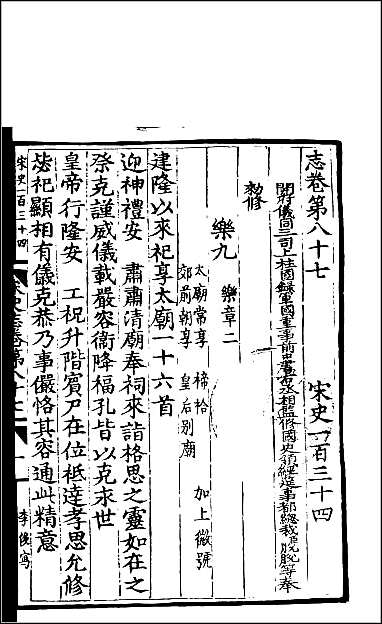 志卷第八十七　宋史一百三十四
開府儀同三司上柱國錄軍國重事前中書右丞相監修國史領經筵事都總裁脫脫等奉
勅修
樂九　樂章二
太廟常享　禘祫　加上徽號
郊前朝享　皇后別廟
建隆以來祀享太廟一十六首
迎神禮安　肅肅清廟奉祠來詣格思之靈如在之
祭克謹威儀載嚴容衛降福孔皆以克永世
皇帝行隆安　工祝升階賓尸在位祗達孝思允修
毖祀顯相有儀克恭乃事儼恪其容通此精意
宋史一百三十四
李俊寫